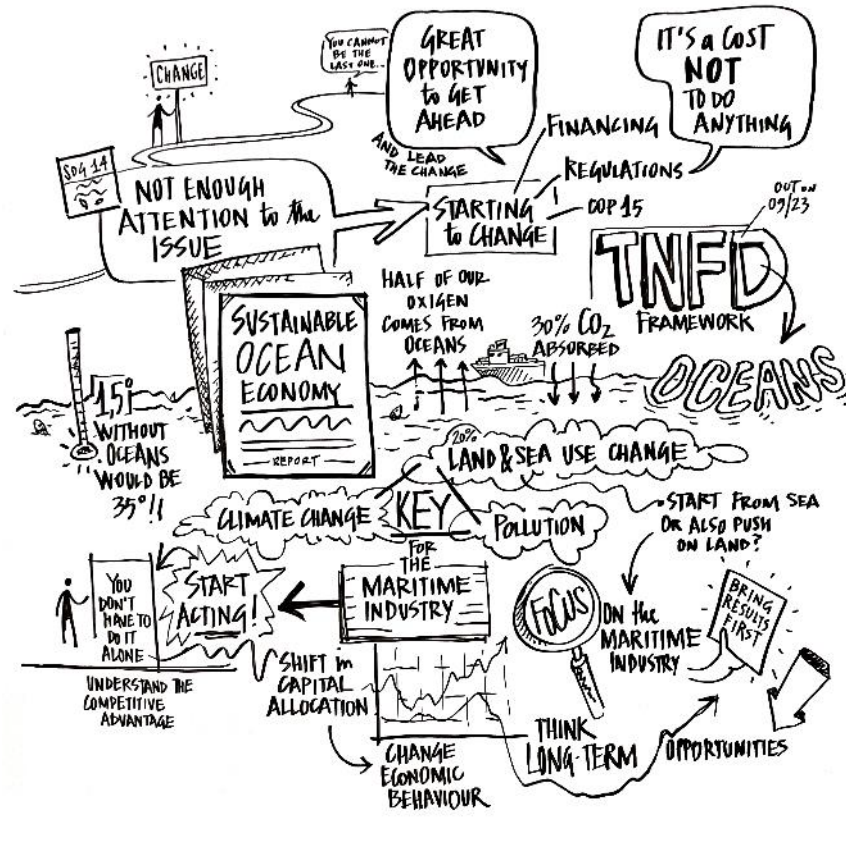 CHANGE
YOU CANNOT
BE THE
LAST ONE...
GREAT
OPPORTUNITY
to GET
AHEAD
AND LEAD
THE CHANGE
IT'S a COST
NOT
TO DO
ANYTHING
FINANCING
REGULATIONS
COP 15
SDG 14
NOT ENOUGH
ATTENTION to the
ISSUE
STARTING
to CHANGE
OUT ON
09/23
TNFD
FRAMEWORK
OCEANS
SUSTAINABLE
OCEAN
ECONOMY
REPORT
HALF OF OUR
OXIGEN
COMES FROM
OCEANS
30% CO2
ABSORBED
1,5°
WITHOUT
OCEANS
WOULD BE
35°!!
20%
LAND & SEA USE CHANGE
CLIMATE CHANGE
KEY
POLLUTION
FOR
THE
MARITIME
INDUSTRY
START FROM SEA
OR ALSO PUSH
ON LAND?
YOU
DON'T
HAVE TO
DO IT
ALONE
START
ACTING!
UNDERSTAND THE
COMPETITIVE
ADVANTAGE
SHIFT in
CAPITAL
ALLOCATION
CHANGE
ECONOMIC
BEHAVIOUR
FOCUS
ON the
MARITIME
INDUSTRY
BRING
RESULTS
FIRST
THINK
LONG-TERM
OPPORTUNITIES